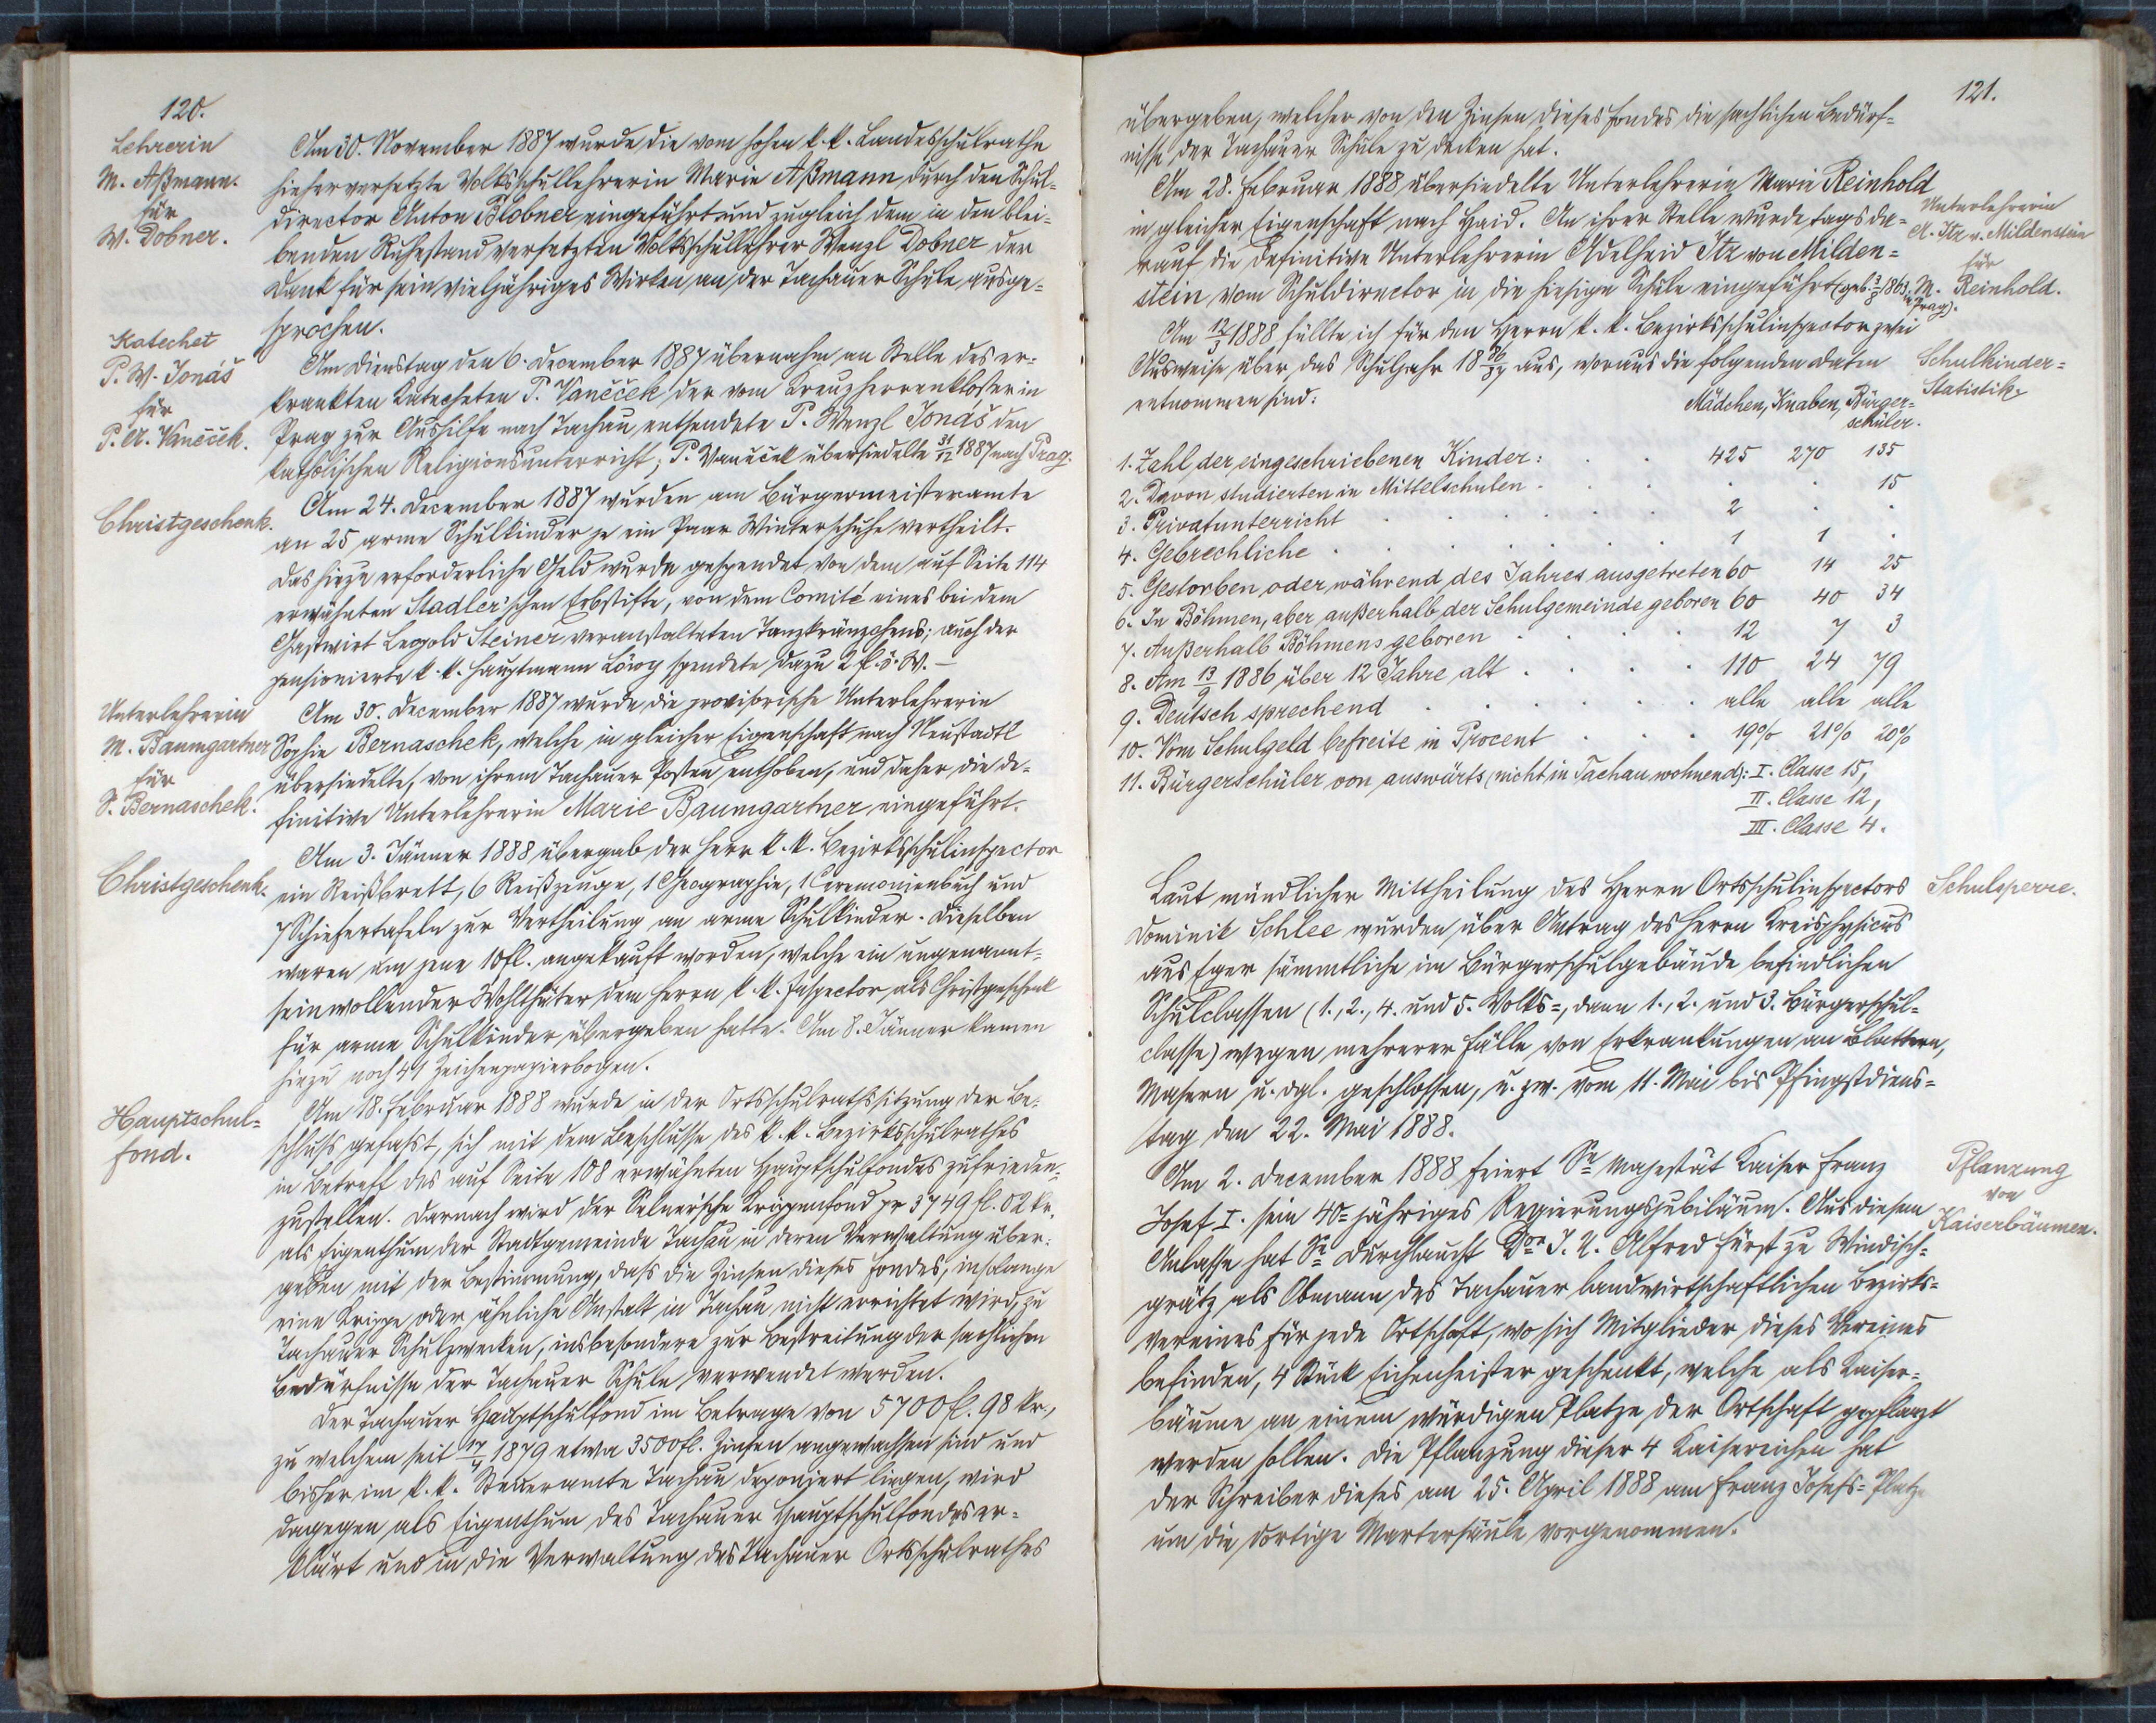 120.
Lehrerin
M. Aßmann.
für
W. Dobner.
Am 30. November 1887 wurde die vom hohen k. k. Landesschulrathe
hieher versetzte Volksschullehrerin Marie Aßmann durch den Schul=
director Anton Blobner eingeführt und zugleich dem in den blei=
benden Ruhestand versetzten Volksschullehrer Wenzl Dobner der
Dank für sein vieljähriges Wirken an der Tachauer Schule ausge=
sprochen.
Katechet
P. W. Jonáš
für
P. A. Vaněček.
Am Dienstag den 6. December 1887 übernahm an Stelle des er=
krankten Katecheten P. Vaněček der vom Kreuzherrenkloster in
Prag zur Aushilfe nach Tachau entsendete P. Wenzl Jonáš den
katholischen Religionsunterricht; P. Vaněček übersiedelte 31/12 1887 nach Prag.
Christgeschenk.
Am 24. December 1887 wurden am Bürgermeisteramte
an 25 arme Schulkinder je ein Paar Winterschuhe vertheilt.
Das hiezu erforderliche Geld wurde gespendet von dem auf Seite 114
erwähnten Stadler'schen Erbstifte, von dem Comité eines bei dem
Gastwirt Leopold Steiner veranstalteten Tanzkränzchens; auch der
pensionierte k. k. Hauptmann Löwy spendete dazu 2 fl. ö. W. —
Unterlehrerin
M. Baumgartner
für
S. Bernaschek.
Am 30. December 1887 wurde die provisorische Unterlehrerin
Sophie Bernaschek, welche in gleicher Eigenschaft nach Neustadtl
übersiedelte, von ihrem Tachauer Posten enthoben, und daher die de=
finitive Unterlehrerin Marie Baumgartner eingeführt.
Christgeschenk.
Am 3. Jänner 1888 übergab der Herr k. k. Bezirksschulinspector
ein Reißbrett, 6 Reißzeuge, 1 Geographie, 1 Ceremonienbuch und
7 Schiefertafeln zur Vertheilung an arme Schulkinder. Dieselben
waren um jene 10 fl. angekauft worden, welche ein ungenannt=
seinwollender Wohlthäter dem Herrn k. k. Inspector als Christgeschenk
für arme Schulkinder übergeben hatte. Am 8. Jänner kamen
hiezu noch 41 Zeichenpapierbogen.
Hauptschul=
fond.
Am 18. Februar 1888 wurde in der Ortsschulrathssitzung der Be=
schluß gefasst, sich mit dem Beschlusse des k. k. Bezirksschulrathes
in Betreff des auf Seite 108 erwähnten Hauptschulfondes zufrieden=
zustellen. Darnach wird der Krippenfond pr 3749 fl. 02 kr.
als Eigenthum der Stadtgemeinde Tachau in deren Verwaltung über=
geben mit der Bestimmung, dass die Zinsen dieses Fondes, insolange
eine Krippe oder ähnliche Anstalt in Tachau nicht errichtet wird, zu
Tachauer Schulzwecken, insbesondere zur Bestreitung der sachlichen
Bedürfnisse der Tachauer Schule verwendet werden.
Der Tachauer Hauptschulfond im Betrage von 5700 fl. 98 kr.,
zu welchem seit 17/4 1879 etwa 3500 fl. Zinsen angewachsen sind und
bisher im k. k. Steueramte Tachau deponiert liegen, wird
dagegen als Eigenthum des Tachauer Hauptschulfondes er=
klärt und in die Verwaltung des Tachauer Ortsschulrathes
121.
übergeben, welcher von den Zinsen dieses Fondes die sachlichen Bedürf=
nisse der Tachauer Schule zu decken hat.
Am 28. Februar 1888 übersiedelte Unterlehrerin Marie Reinhold
in gleicher Eigenschaft nach Haid. An ihrer Stelle wurde tags da=
rauf die definitive Unterlehrerin Adelheid Itz von Milden=
stein vom Schuldirector in die hiesige Schule eingeführt (geb. 3/8 1863 in Prag).
Unterlehrerin
A. Itz v. Mildenstein
für
M. Reinhold.
Am 12/3 1888 füllte ich für den Herrn k. k. Bezirksschulinspector zwei
Ausweise über das Schuljahr 18 86/87 aus, woraus die folgenden Daten
entnommen sind:
Schulkinder=
Statistik.
Mädchen, Knaben, Bürger=
schüler.
1. Zahl der eingeschriebenen Kinder: . . 425 270 135
2. Davon studierten in Mittelschulen . . . . . 15
3. Privatunterricht . . . . . . 2 . .
4. Gebrechliche . . . . . . . 1 1 .
5. Gestorben oder während des Jahres ausgetreten 60 14 25
6. In Böhmen, aber außerhalb der Schulgemeinde geboren 60 40 34
7. Außerhalb Böhmens geboren . . . . 12 7 3
8. Am 13/9 1886 über 12 Jahre alt . . . . 110 24 79
9. Deutsch sprechend . . . . . . alle alle alle
10. Vom Schulgeld befreite in Procent . . . 19% 21% 20%
11. Bürgerschüler von auswärts (nicht in Tachau wohnend): I. Classe 15,
II. Classe 12,
III. Classe 4.
Laut mündlicher Mittheilung des Herrn Ortsschulinspectors
Schulsperre.
Dominik Schlee wurden über Antrag des Herrn Kreisphysicus
aus Eger sämmtliche im Bürgerschulgebäude befindlichen
Schulclassen (1., 2., 4. und 5. Volks=, dann 1., 2. und 3. Bürgerschul=
classe) wegen mehrerer Fälle von Erkrankungen an Blattern,
Masern u. dgl. geschlossen, u. zw. vom 11. Mai bis Pfingstdiens=
tag den 22. Mai 1888.
Am 2. December 1888 feiert Se Majestät Kaiser Franz
Josef I. sein 40=jähriges Regierungsjubiläum. Aus diesem
Anlasse hat Se Durchlaucht Dor J. U. Alfred Fürst zu Windisch=
grätz als Obmann des Tachauer landwirtschaftlichen Bezirks=
vereines für jede Ortschaft, wo sich Mitglieder dieses Vereines
befinden, 4 Stück Eichenheister geschenkt, welche als Kaiser=
bäume an einem würdigen Platze der Ortschaft gepflanzt
werden sollen. Die Pflanzung dieser 4 Kaisereichen hat
der Schreiber dieses am 25. April 1888 am Franz Josefs=Platze
um die dortige Martersäule vorgenommen.
Pflanzung
von
Kaiserbäumen.